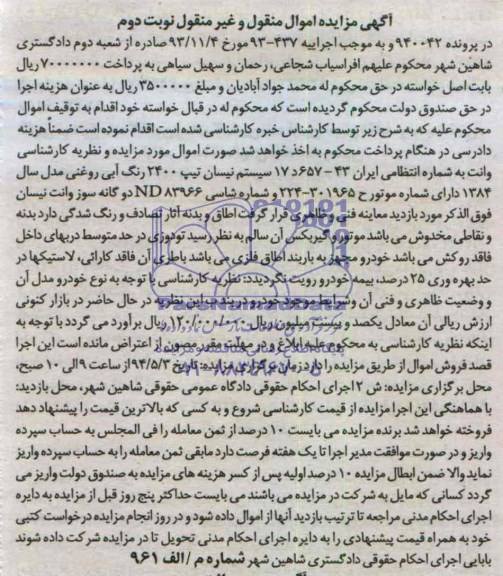 آگهی مزایده اموال منقول و غیر منقول نوبت دوم
در پرونده ۹۴۰۰۴۲ و به موجب اجراییه ۴۳۷-۹۳ مورخ ۹۳/۱۱/۴ صادره از شعبه دوم دادگستری
شاهین شهر محکوم علیهم افراسیاب شجاعی، رحمان و سهیل سیاهی به پرداخت ۷۰۰۰۰۰۰۰ ریال
بابت اصل خواسته در حق محکوم له محمد جواد آبادیان و مبلغ ۳۵۰۰۰۰۰ ریال به عنوان هزینه اجرا
در حق صندوق دولت محکوم گردیده است که محکوم له در قبال خواسته خود اقدام به توقیف اموال
محکوم علیه که به شرح زیر توسط کارشناس خبره کارشناسی شده است اقدام نموده است ضمناً هزینه
دادرسی در هنگام پرداخت محکوم به اخذ خواهد شد صورت اموال مورد مزایده و نظریه کارشناسی
وانت به شماره انتظامی ایران ۴۳ - ۶۵۷د۱۷ سیستم نیسان تیپ ۲۴۰۰ رنگ آبی روغنی مدل سال
۱۳۸۴ دارای شماره موتور ح ۳۰۱۹۶۵-۲۲۴ و شماره شاسی ND۸۳۹۶۶ دو گانه سوز وانت نیسان
فوق الذکر مورد بازدید معاینه فنی و ظاهری قرار گرفت اطاق و بدنه آثار تصادف و رنگ شدگی دارد بدنه
و نقاطی مخدوش می باشد موتور و گیربکس آن سالم به نظر رسید تودوزی در حد متوسط دربهای داخل
فاقد روکش می باشد خودرو مجهز به باربند اطاق فلزی می باشد باطری آن فاقد کارائی، لاستیکها در
حد بهره وری ۲۵ درصد، بیمه خودرو رویت نگردید: نظریه کارشناسی با توجه به نوع خودرو مدل آن
و وضعیت ظاهری و فنی آن و شرایط موجود خودرو در بند ب این نظریه در حال حاضر در بازار کنونی
ارزش ریالی آن معادل یکصد و بیست میلیون ریال ریال برآورد می گردد با توجه به
اینکه نظریه کارشناسی به محکوم علیه ابلاغ و در مهلت مقرر مصون از اعتراض مانده است این اجرا
قصد فروش اموال از طریق مزایده را دارد زمان برگزاری مزایده: تاریخ ۹۴/۵/۳ از ساعت ۹ الی ۱۰ صبح،
محل برگزاری مزایده: ش ۲ اجرای احکام حقوقی دادگاه عمومی حقوقی شاهین شهر، محل بازدید:
با هماهنگی این اجرا مزایده از قیمت کارشناسی شروع و به کسی که بالاترین قیمت را پیشنهاد دهد
فروخته خواهد شد برنده مزایده می بایست ۱۰ درصد از ثمن معامله را فی المجلس به حساب سپرده
واریز و در صورت موافقت مدیر اجرا تا یک هفته فرصت دارد مابقی ثمن معامله را به حساب سپرده واریز
نماید والا ضمن ابطال مزایده ۱۰ درصد اولیه پس از کسر هزینه های مزایده به صندوق دولت واریز می
گردد کسانی که مایل به شرکت در مزایده می باشند می بایست حداکثر پنج روز قبل از مزایده به دایره
اجرای احکام مدنی مراجعه تا ترتیب بازدید آنها از اموال داده شود و در روز انجام مزایده درخواست کتبی
خود به همراه قیمت پیشنهادی را به دایره اجرای احکام مدنی تحویل تا در مزایده شرکت داده شوند
بابایی اجرای احکام حقوقی دادگستری شاهین شهر شماره م / الف ۹۶۱